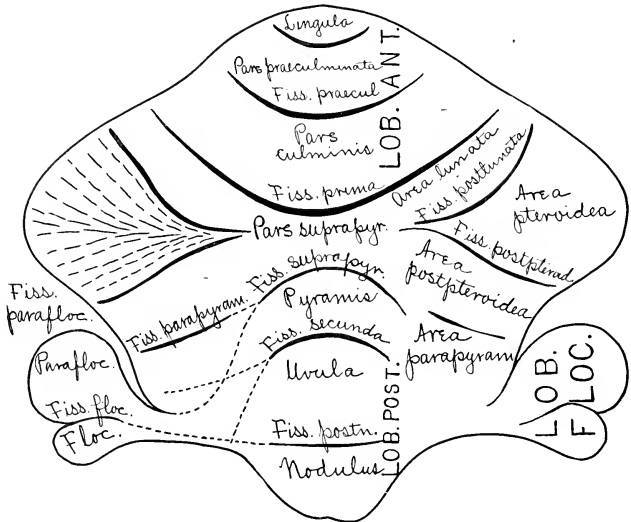 Lingula
Pars praeculminata
Fiss. praecul
LOB. ANT.
Pars
culminis
Fiss. prima
Area lunata
Fiss. postlunata
Area
pteroidea
Pars suprapyr.
Fiss. postpteroid.
Fiss. suprapyr.
Area
postpteroidea
Fiss.
parafloc.
Fiss. parapyram.
Pyramis
Fiss. secunda
Area
parapyram.
Parafloc.
Uvula
LOB.
FLOC.
Fiss. floc.
Floc.
LOB. POST.
Fiss. postn.
Nodulus